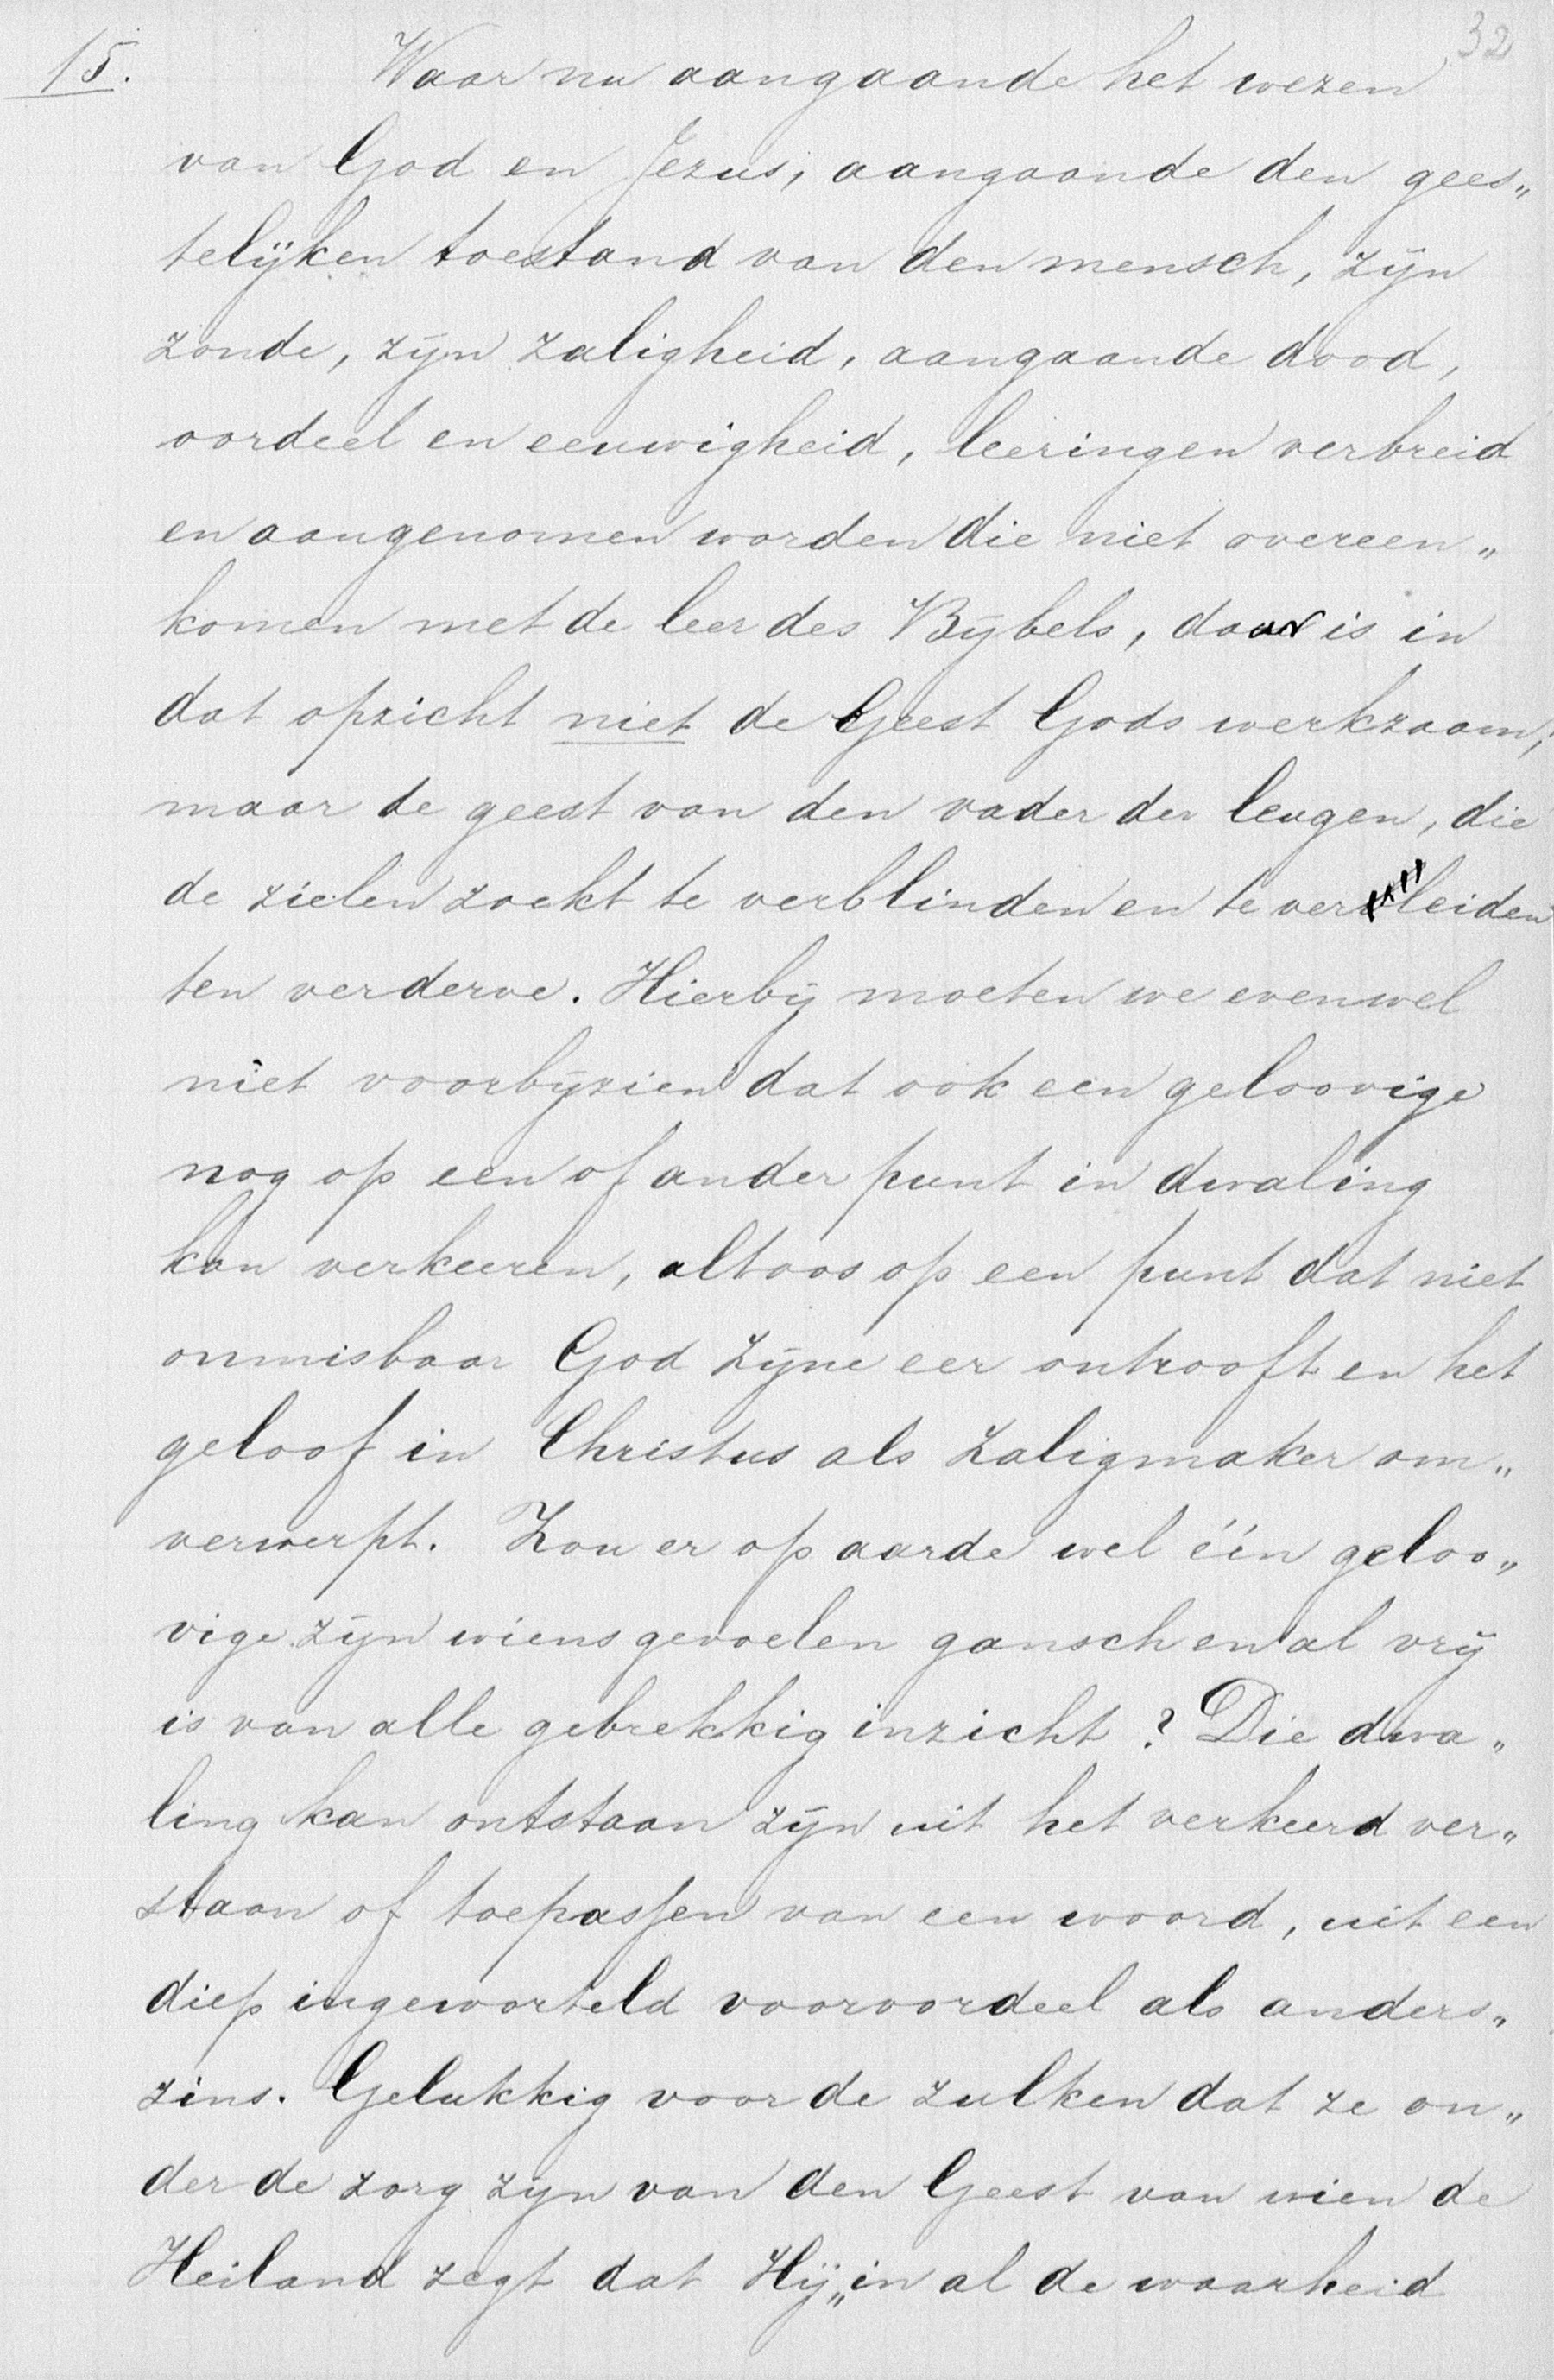 32
15. Waar nu aangaande het wezen
van God en Jezus, aangaande den gees„
telijken toestand van den mensch, zijn
zonde, zijn zaligheid, aangaande dood,
oordeel en eeuwigheid, leeringen verbreid
en aangenomen worden die niet overeen„
komen met de leer des Bijbels, daar is in
dat opzicht niet de Geest Gods werkzaam,
maar de geest van den vader der leugen, die
de zielen zoekt te verblinden en te verleiden
ten verderve. Hierbij moeten we evenwel
niet voorbijzien dat ook een geloovige
nog op een of ander punt in dwaling
kan verkeeren, altoos op een punt dat niet
onmisbaar God Zijne eer ontrooft en het
geloof in Christus als Zaligmaker om„
verwerpt. Zou er op aarde wel één geloo„
vige zijn wiens gevoelen gansch en al vrij
is van alle gebrekkig inzicht? Die dwa„
ling kan ontstaan zijn uit het verkeerd ver„
staan of toepassen van een woord, uit een
diep ingeworteld vooroordeel als anders„
zins. Gelukkig voor de zulken dat ze on„
der de zorg zijn van den Geest van wien de
Heiland zegt dat Hij „in al de waarheid